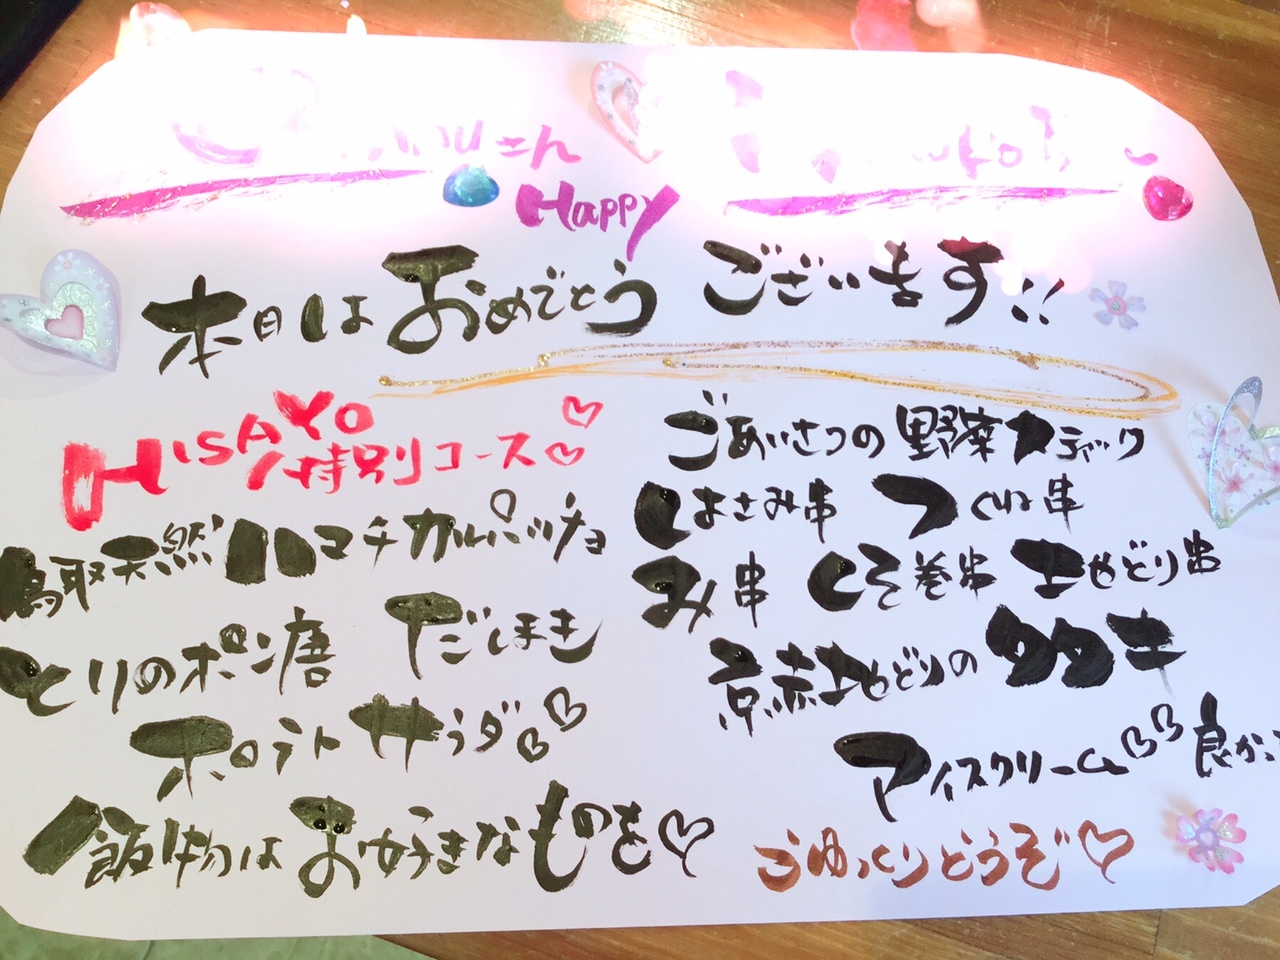 さん
Happy
本日はおめでとうございます!!
HISAYO特別コース♡♡
鳥取天然ハマチカルパッチョ
とりのポン唐 だしまき
ポテトサラダ♡♡
飯物はお好きなものを♡
ごあいさつの野菜スティック
はさみ串 つくね串
み串 しそ巻串 地やどり串
京赤地どりのタタキ
アイスクリーム♡♡
ごゆっくりどうぞ♡